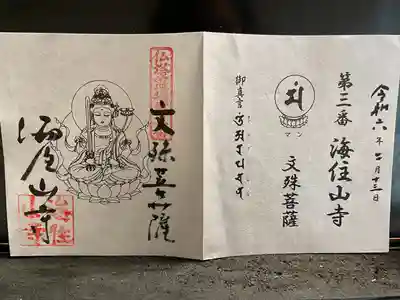 令和六年
月十三日
第三番 海住山寺
マン
文殊菩薩
御真言
文殊菩薩
海住山寺